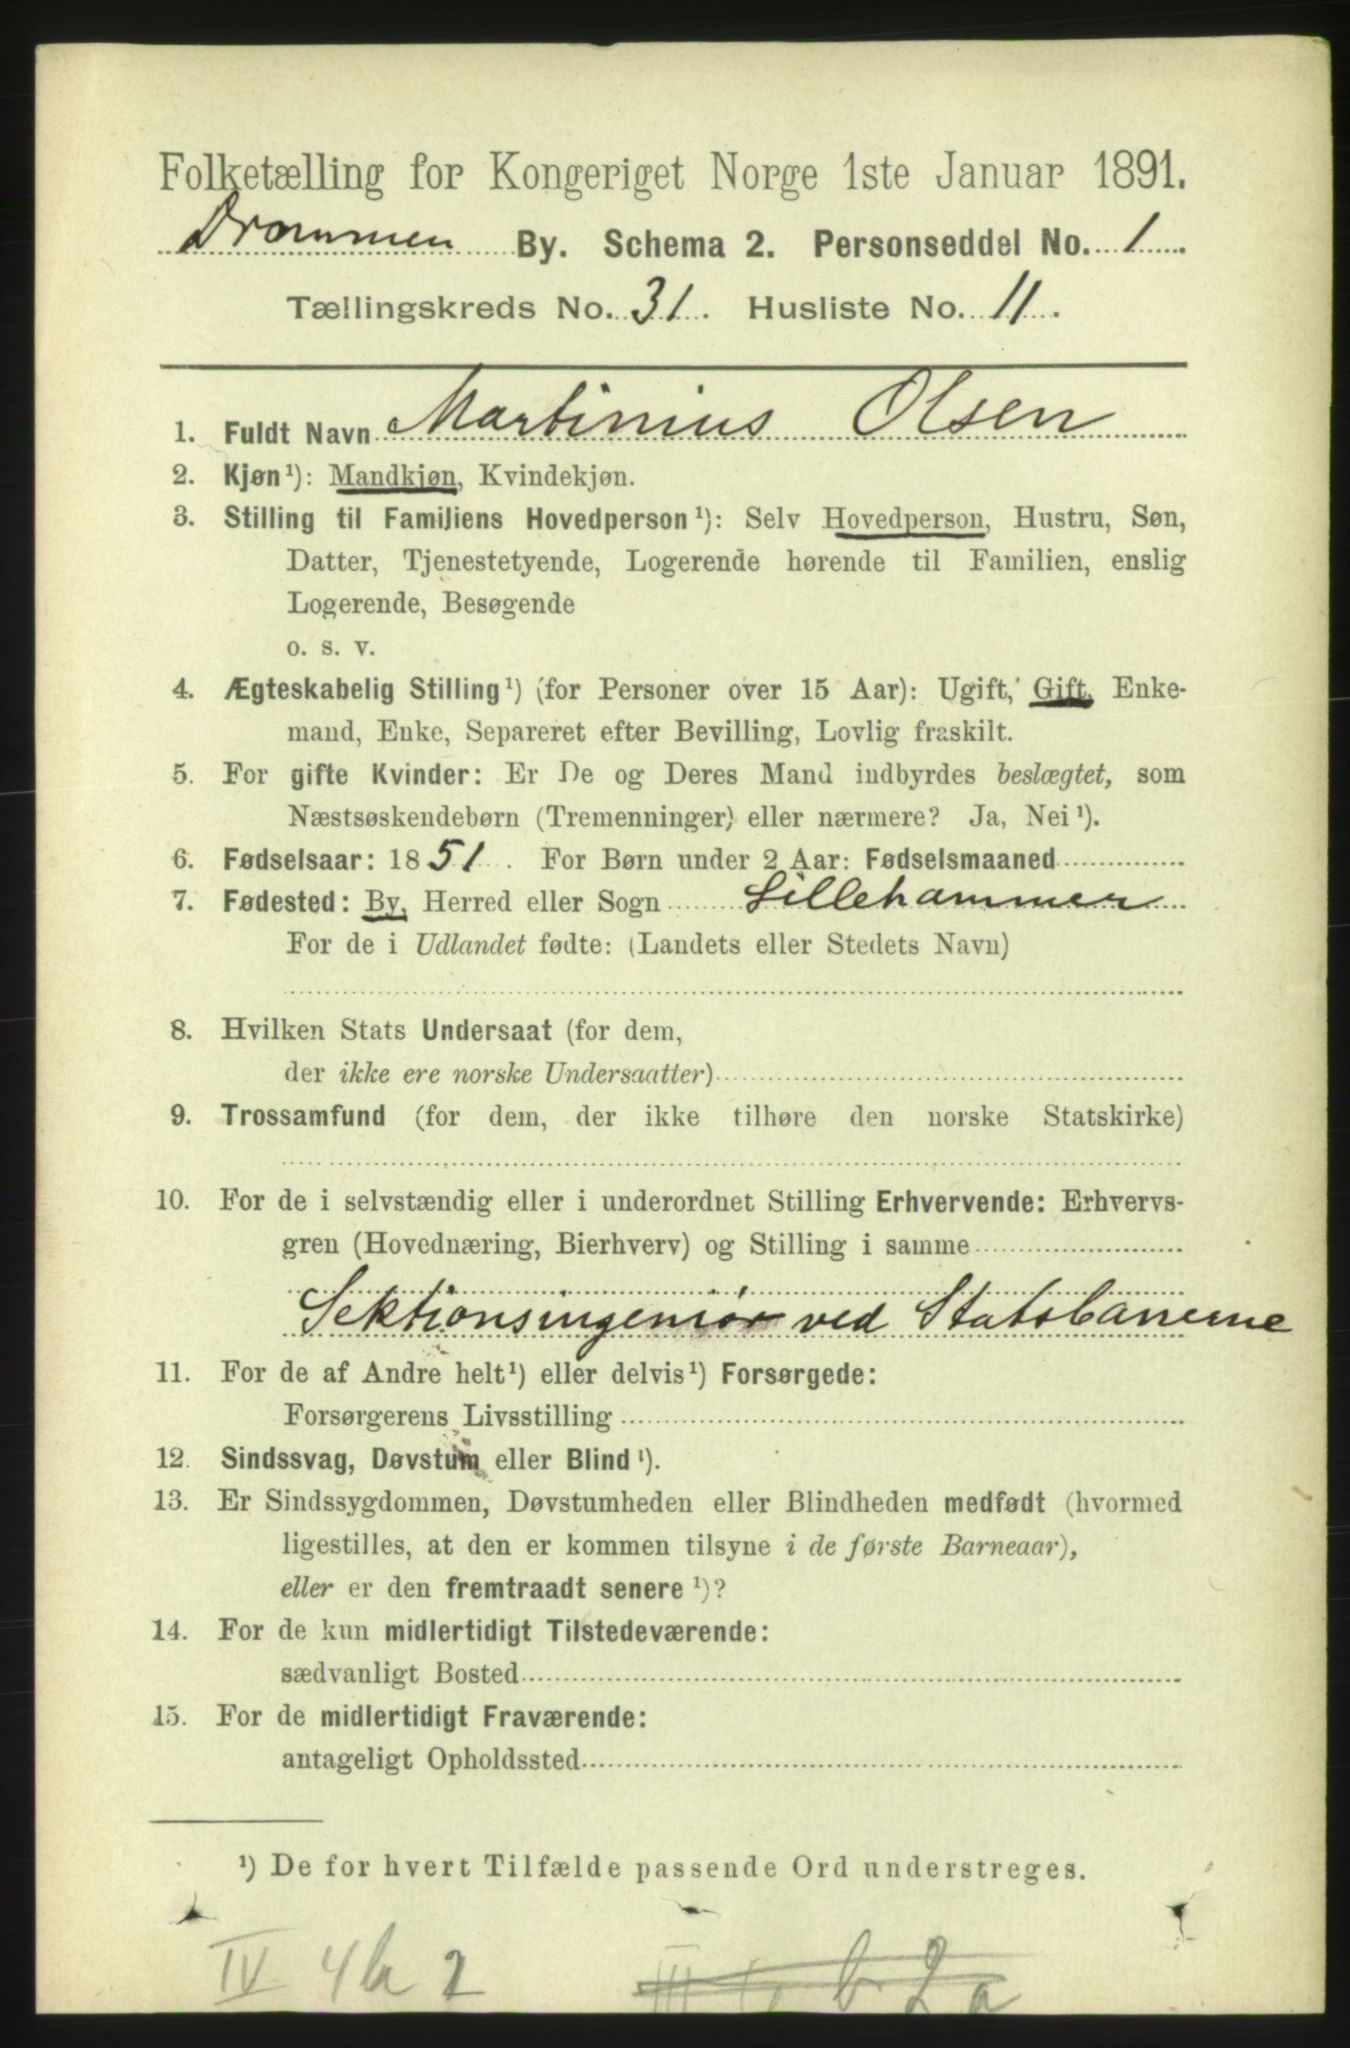 Folketælling for Kongeriget Norge 1ste Januar 1891.
Drammen By. Schema 2. Personseddel No. 1
Tællingskreds No. 31. Husliste No. 11.
1. Fuldt Navn Martinius Olsen
2. Kjøn¹): Mandkjøn, Kvindekjøn.
3. Stilling til Familiens Hovedperson¹): Selv Hovedperson, Hustru, Søn,
Datter, Tjenestetyende, Logerende hørende til Familien, enslig
Logerende, Besøgende
o. s. v.
4. Ægteskabelig Stilling¹) (for Personer over 15 Aar): Ugift, Gift, Enke-
mand, Enke, Separeret efter Bevilling, Lovlig fraskilt.
5. For gifte Kvinder: Er De og Deres Mand indbyrdes beslægtet, som
Næstsøskendebørn (Tremenninger) eller nærmere? Ja, Nei¹).
6. Fødselsaar: 1851. For Børn under 2 Aar: Fødselsmaaned
7. Fødested: By, Herred eller Sogn Lillehammer
For de i Udlandet fødte: (Landets eller Stedets Navn)
8. Hvilken Stats Undersaat (for dem,
der ikke ere norske Undersaatter)
9. Trossamfund (for dem, der ikke tilhøre den norske Statskirke)
10. For de i selvstændig eller i underordnet Stilling Erhvervende: Erhvervs-
gren (Hovednæring, Bierhverv) og Stilling i samme
Sektionsingeniør ved Statsbanerne
11. For de af Andre helt¹) eller delvis¹) Forsørgede:
Forsørgerens Livsstilling
12. Sindssvag, Døvstum eller Blind¹).
13. Er Sindssygdommen, Døvstumheden eller Blindheden medfødt (hvormed
ligestilles, at den er kommen tilsyne i de første Barneaar),
eller er den fremtraadt senere¹)?
14. For de kun midlertidigt Tilstedeværende:
sædvanligt Bosted
15. For de midlertidigt Fraværende:
antageligt Opholdssted
¹) De for hvert Tilfælde passende Ord understreges.
IV 4b 2